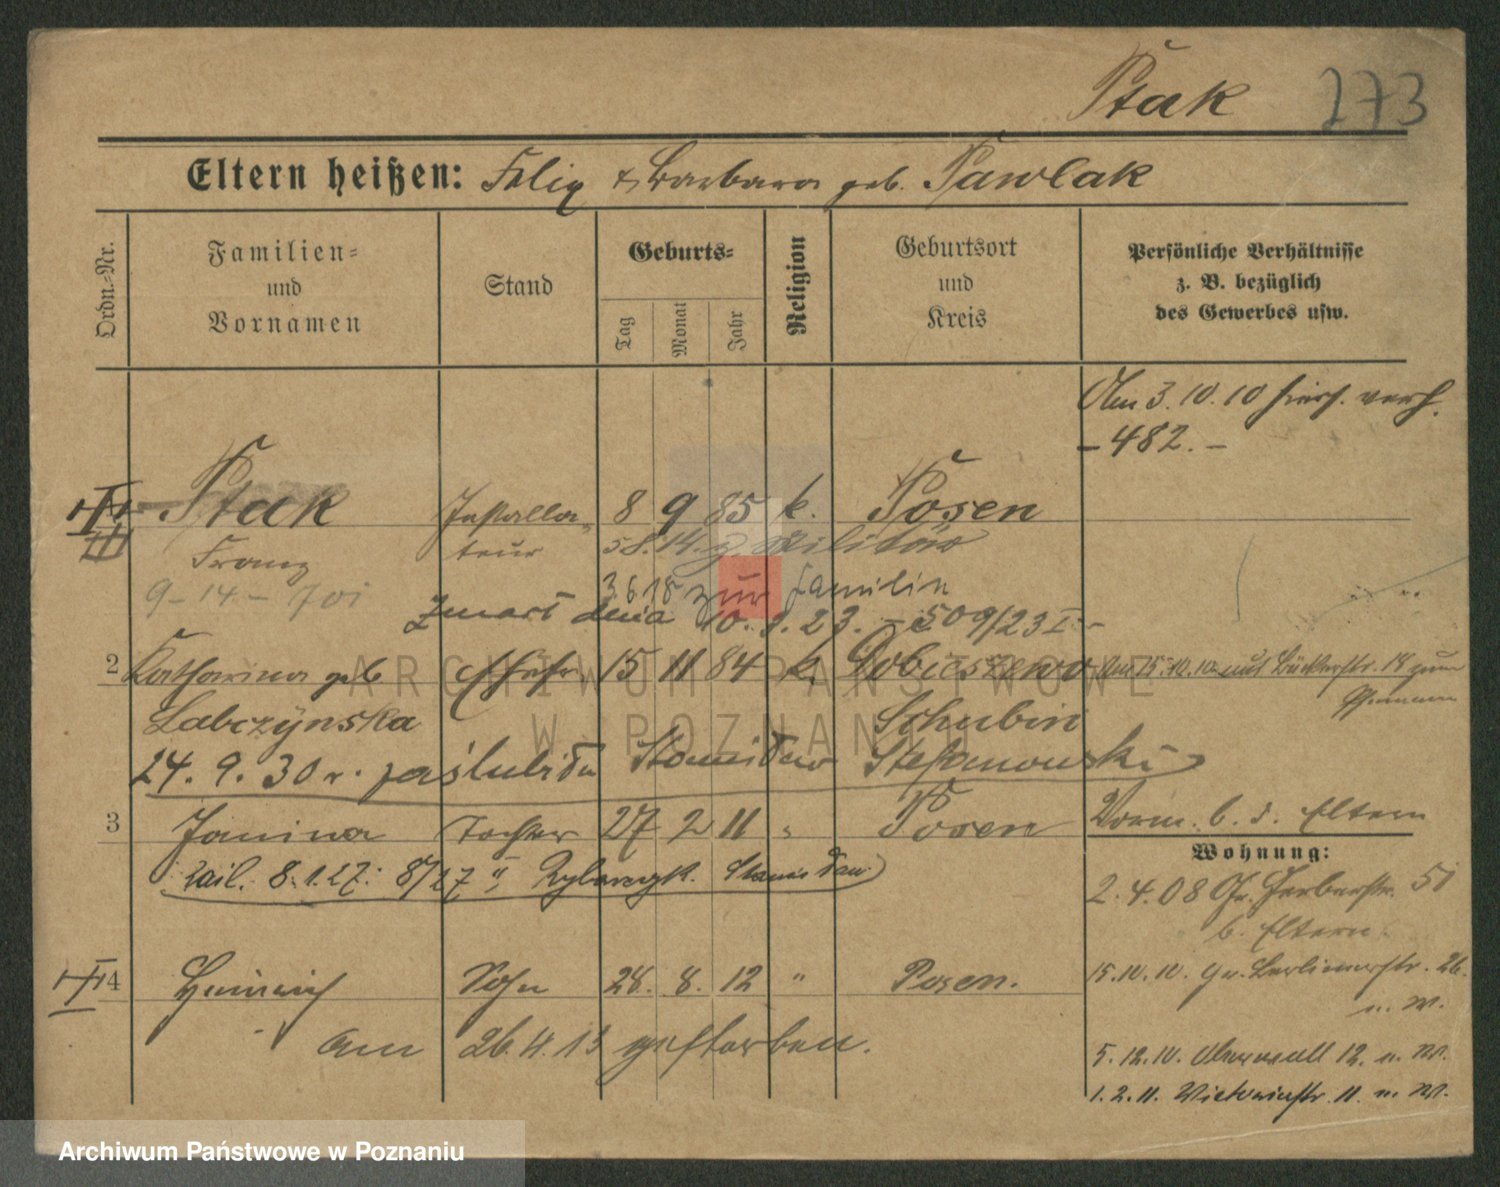 Ptak 273
Eltern heißen: Felix & Barbara geb. Pawlak
Ordn.-Nr.
Familien-
und
Vornamen
Stand
Geburts-
Tag
Monat
Jahr
Religion
Geburtsort
und
Kreis
Persönliche Verhältnisse
z. B. bezüglich
des Gewerbes usw.
Am 3.10.10 hier verh.
- 482. -
Ptak Installa- 8 9 85 k. Posen
Franz teur 5.8.14. z. Militär
9-14-
3.6.18 zur Familie
zmarł dnia 10. 23. - 509/23 I. -
2 Katharina geb Ehefr. 15 11 84 k. Dobieszewo Am 15.10.10 aus Bäckerstr. 18 zum
Ehemann
Labczynska Schubin
24. 9. 30 r. zaślubiła Stanisław Stefanowski
3 Janina Tochter 27 2 11 " Posen
Vorm. b. d. Eltern
8.1.27: 8/27 Rybarczyk Stanisław
Wohnung:
2.4.08 Gr. Gerberstr. 51
b. Eltern
4 Heinrich Sohn 28. 8. 12 " Posen.
15.10.10. Gr. Berlinerstr. 26.
n. W.
Am 26.4.13 gestorben.
5.12.10. Oberwall 12. n. W.
1.2.11. Victoriastr. 11 n. W.
ARCHIWUM PAŃSTWOWE
W POZNANIU
Archiwum Państwowe w Poznaniu